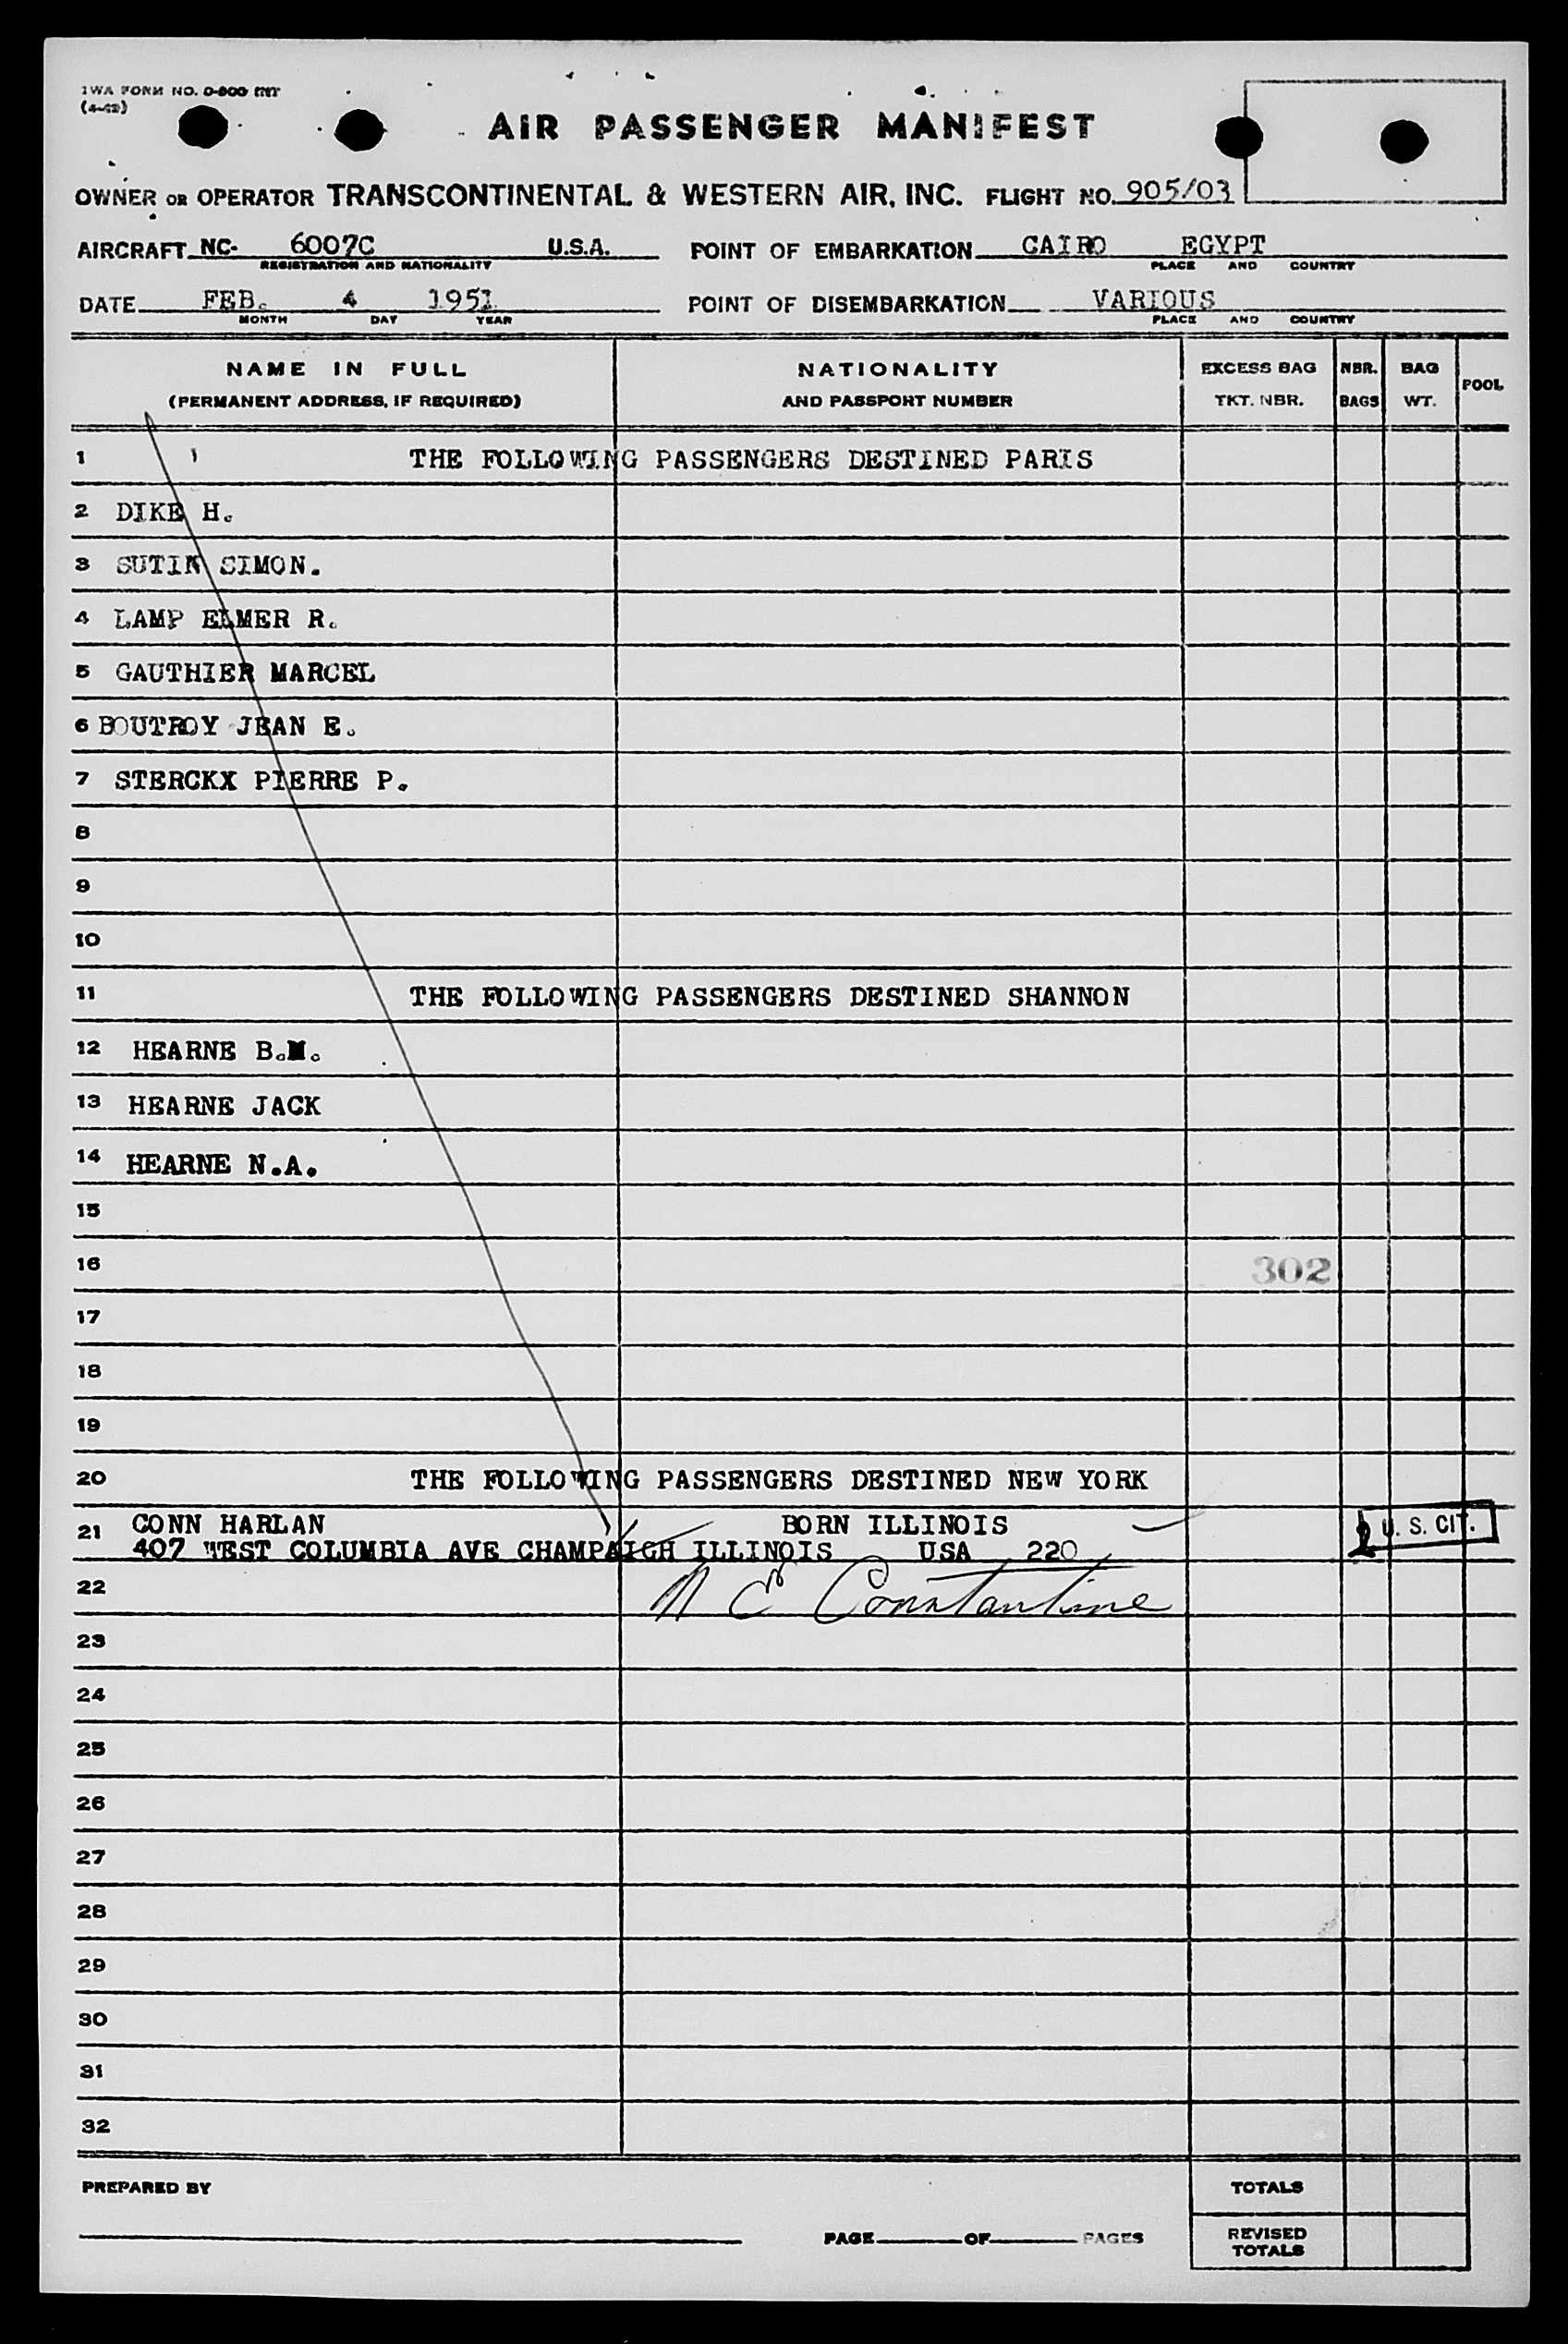 TWA FORM NO. 0-800 INT
(4-48)
AIR PASSENGER MANIFEST
OWNER OR OPERATOR TRANSCONTINENTAL & WESTERN AIR, INC. FLIGHT NO. 905/03
AIRCRAFT NC- 6007C U.S.A. POINT OF EMBARKATION CAIRO EGYPT
REGISTRATION AND NATIONALITY PLACE AND COUNTRY
DATE FEB. 4 1951 POINT OF DISEMBARKATION VARIOUS
MONTH DAY YEAR PLACE AND COUNTRY
NAME IN FULL NATIONALITY EXCESS BAG NBR. BAG POOL
(PERMANENT ADDRESS, IF REQUIRED) AND PASSPORT NUMBER TKT. NBR. BAGS WT.
1 THE FOLLOWING PASSENGERS DESTINED PARIS
2 DIKE H.
3 SUTIN SIMON.
4 LAMP ELMER R.
5 GAUTHIER MARCEL
6 BOUTROY JEAN E.
7 STERCKX PIERRE P.
8
9
10
11 THE FOLLOWING PASSENGERS DESTINED SHANNON
12 HEARNE B.M.
13 HEARNE JACK
14 HEARNE N.A.
15
16 302
17
18
19
20 THE FOLLOWING PASSENGERS DESTINED NEW YORK
21 CONN HARLAN BORN ILLINOIS U. S. CIT.
407 WEST COLUMBIA AVE CHAMPAIGH ILLINOIS USA 220
22 N E Constantine
23
24
25
26
27
28
29
30
31
32
PREPARED BY TOTALS
PAGE OF PAGES REVISED TOTALS